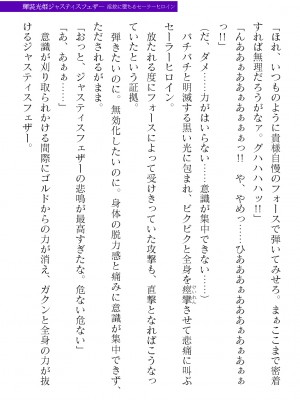 輝装光姫ジャスティスフェザー 淫欲に堕ちるセーラーヒロイン
「ほれ、いつものように貴様自慢のフォースで弾いてみせろ。まぁここまで密着
すれば無理だろうがなァ。グハハハハッ!!」
「んあぁああぁあぁぁぁっ!! や、やめっ……ひああぁあぁあぁぁぁ
ああぁっ!!」
(だ、ダメ……力がはいらない……意識が集中できない……)
バチバチと明滅する黒い光に包まれ、ビクビクと全身を痙攣させて悲痛に叫ぶ
セーラーヒロイン。
放たれる度にフォースによって受けきっていた攻撃も、直撃となればこうなっ
ていたという証拠。
弾きたいのに。無効化したいのに。身体の脱力感と痛みに意識が集中できず、
ただされるがまま。
「おっと、ジャスティスフェザーの悲鳴が最高すぎたな。危ない危ない」
「あ、あぁぁ……」
意識が刈り取られかける間際にゴルドからの力が消え、ガクンと全身の力が抜
けるジャスティスフェザー。